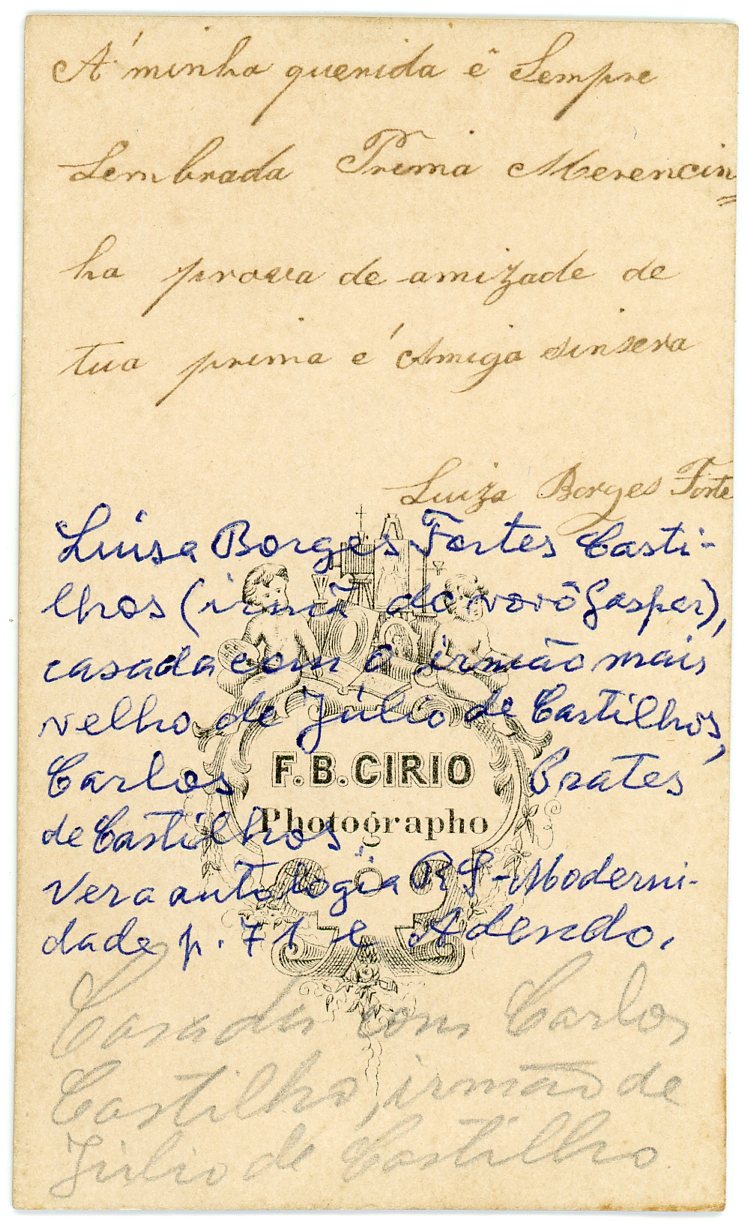 A' minha querida é Sempre
Lembrada Prima Merencin=
ha prova de amizade de
tua prima e' Amiga sinsera
Luiza Borges Forte
Luisa Borges Fortes Casti-
lhos (irmã do vovô Gaspar),
casada com o irmão mais
velho de Júlio de Castilhos,
Carlos Prates
de Castilhos.
Ver a antologia RS-Moderni-
dade p. 71 e Adendo.
F.B. CIRIO
Photographo
Casada com Carlos
Castilho, irmão de
Júlio de Castilho